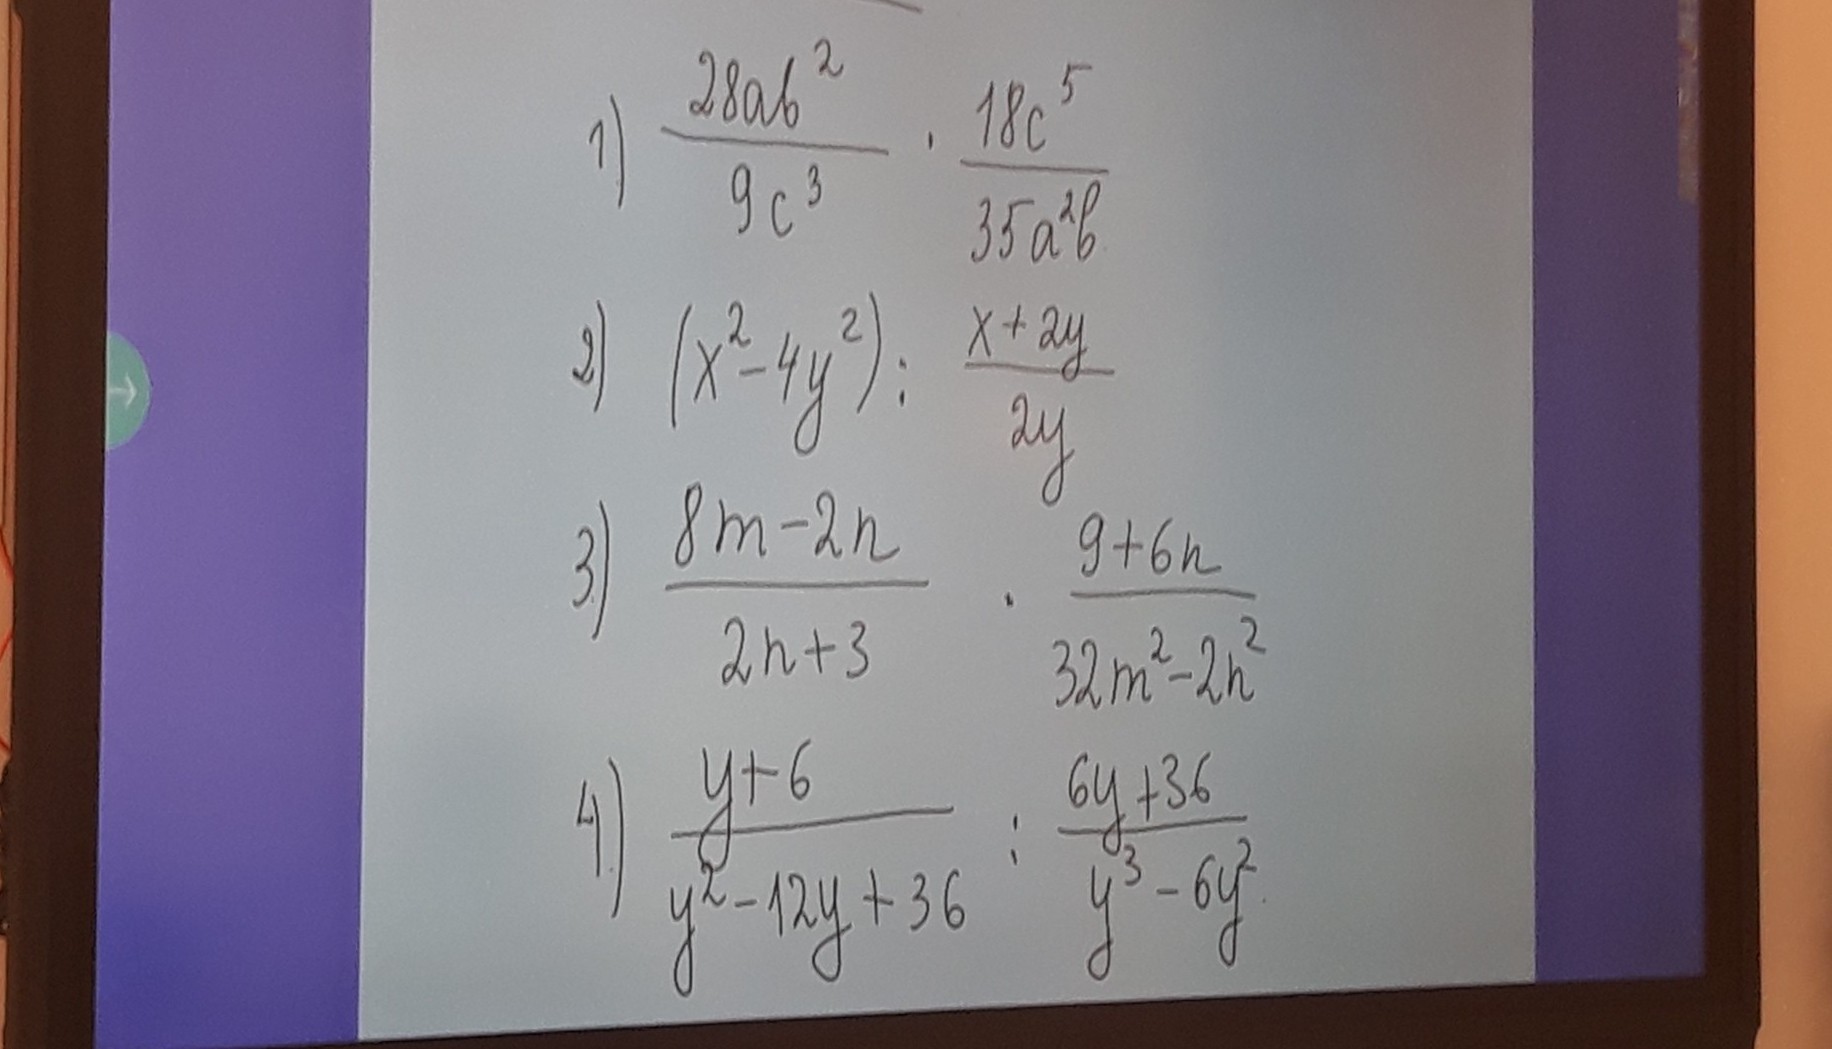 1) 28ab²/9c³ · 18c⁵/35a²b
2) (x²-4y²) : x+2y/2y
3) 8m-2n/2n+3 · 9+6n/32m²-2n²
4) y+6/y²-12y+36 : 6y+36/y³-6y²